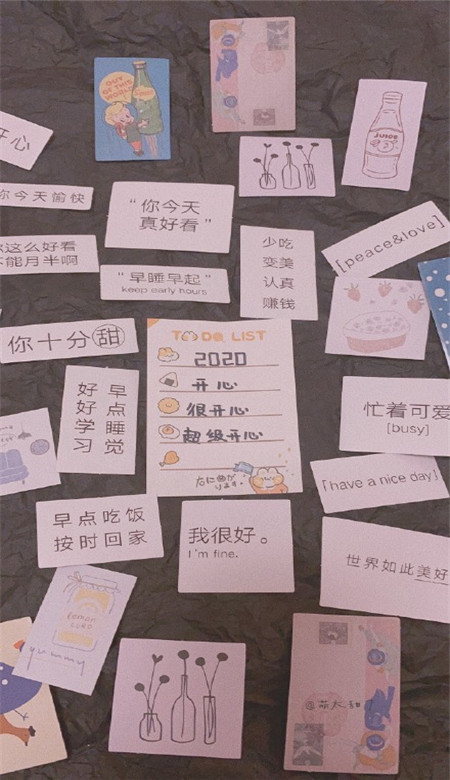 OUT
OF THIS
WORLD
开心
JUICE
你今天愉快
“你今天
真好看”
你这么好看
不能月半啊
少吃
变美
认真
赚钱
[peace&love]
“早睡早起”
keep early hours
你十分甜
TO DO LIST
2020
开心
很开心
超级开心
早点睡觉
好好学习
忙着可爱
[busy]
「have a nice day」
早点吃饭
按时回家
我很好。
I'm fine.
世界如此美好
yummy